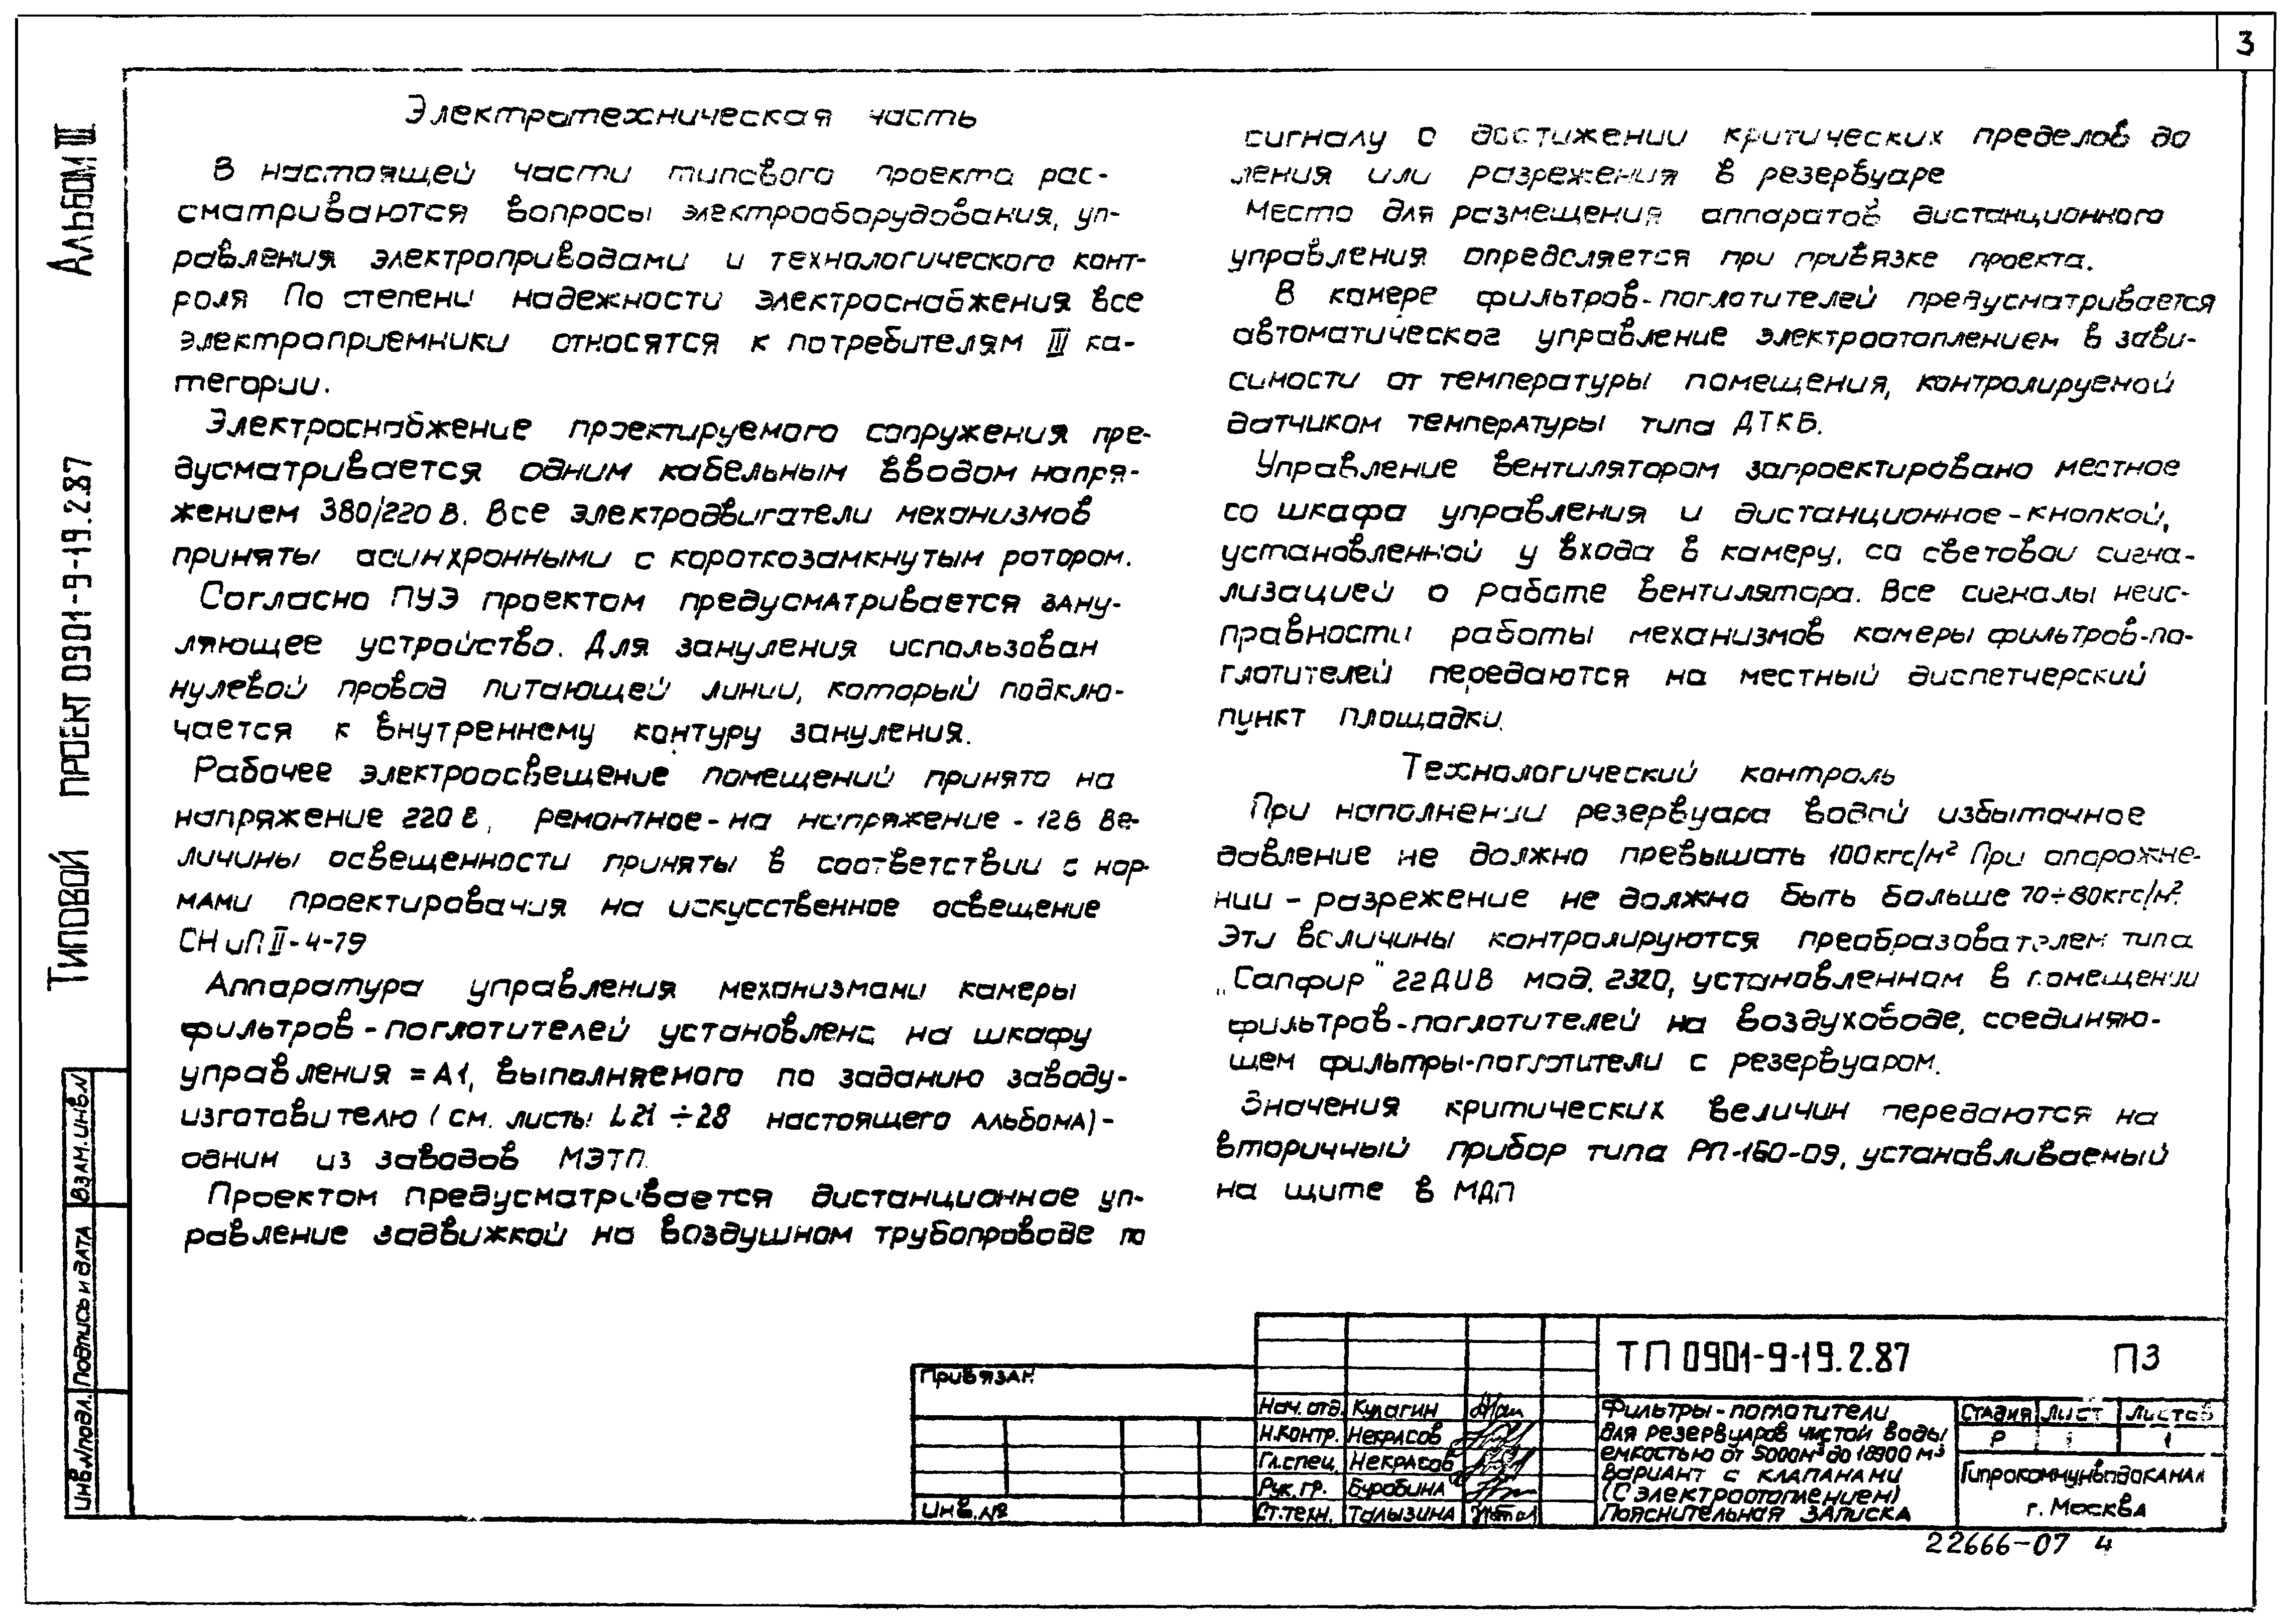 3
Альбом III
Типовой проект 0901-9-19.2.87
Электротехническая часть
В настоящей части типового проекта рас-
сматриваются вопросы электрооборудования, уп-
равления электроприводами и технологического конт-
роля По степени надежности электроснабжения все
электроприемники относятся к потребителям III ка-
тегории.
Электроснабжение проектируемого сооружения пре-
дусматривается одним кабельным вводом напря-
жением 380/220 В. Все электродвигатели механизмов
приняты асинхронными с короткозамкнутым ротором.
Согласно ПУЭ проектом предусматривается зану-
ляющее устройство. Для зануления использован
нулевой провод питающей линии, который подклю-
чается к внутреннему контуру зануления.
Рабочее электроосвещение помещений принято на
напряжение 220 В, ремонтное - на напряжение - 12В Ве-
личины освещенности приняты в соответствии с нор-
мами проектирования на искусственное освещение
СНиП II-4-79
Аппаратура управления механизмами камеры
фильтров-поглотителей установлена на шкафу
управления =А1, выполняемого по заданию заводу-
изготовителю (см. листы L21÷28 настоящего альбома)-
одним из заводов МЭТП.
Проектом предусматривается дистанционное уп-
равление задвижкой на воздушном трубопроводе по
сигналу о достижении критических пределов дав
ления или разрежения в резервуаре
Место для размещения аппаратов дистанционного
управления определяется при привязке проекта.
В камере фильтров-поглотителей предусматривается
автоматическое управление электроотоплением в зави-
симости от температуры помещения, контролируемой
датчиком температуры типа ДТКБ.
Управление вентилятором запроектировано местное
со шкафа управления и дистанционное - кнопкой,
установленной у входа в камеру, со световой сигна-
лизацией о работе вентилятора. Все сигналы неис-
правности работы механизмов камеры фильтров-по-
глотителей передаются на местный диспетчерский
пункт площадки.
Технологический контроль
При наполнении резервуара водой избыточное
давление не должно превышать 100кгс/м² При опорожне-
нии - разрежение не должно быть больше 70÷80кгс/м².
Эти величины контролируются преобразователем типа
„Сапфир" 22ДИВ мод. 2320, установленном в помещении
фильтров-поглотителей на воздуховоде, соединяю-
щем фильтры-поглотители с резервуаром.
Значения критических величин передаются на
вторичный прибор типа РП-160-09, устанавливаемый
на щите в МДП
Взам. инв.N
Подпись и дата
Инв.N подл.
Привязан
Инв. №
Нач. отд. Кулагин
Н.контр. Некрасов
Гл.спец. Некрасов
Рук. гр. Буробина
Ст.техн. Талызина
ТП 0901-9-19.2.87 ПЗ
Фильтры-поглотители
для резервуаров чистой воды
емкостью от 5000м³ до 18900 м³
Вариант с клапанами
(С электроотоплением)
Пояснительная записка
Стадия Лист Листов
Р 1 1
Гипрокоммунводоканал
г. Москва
22666-07 4